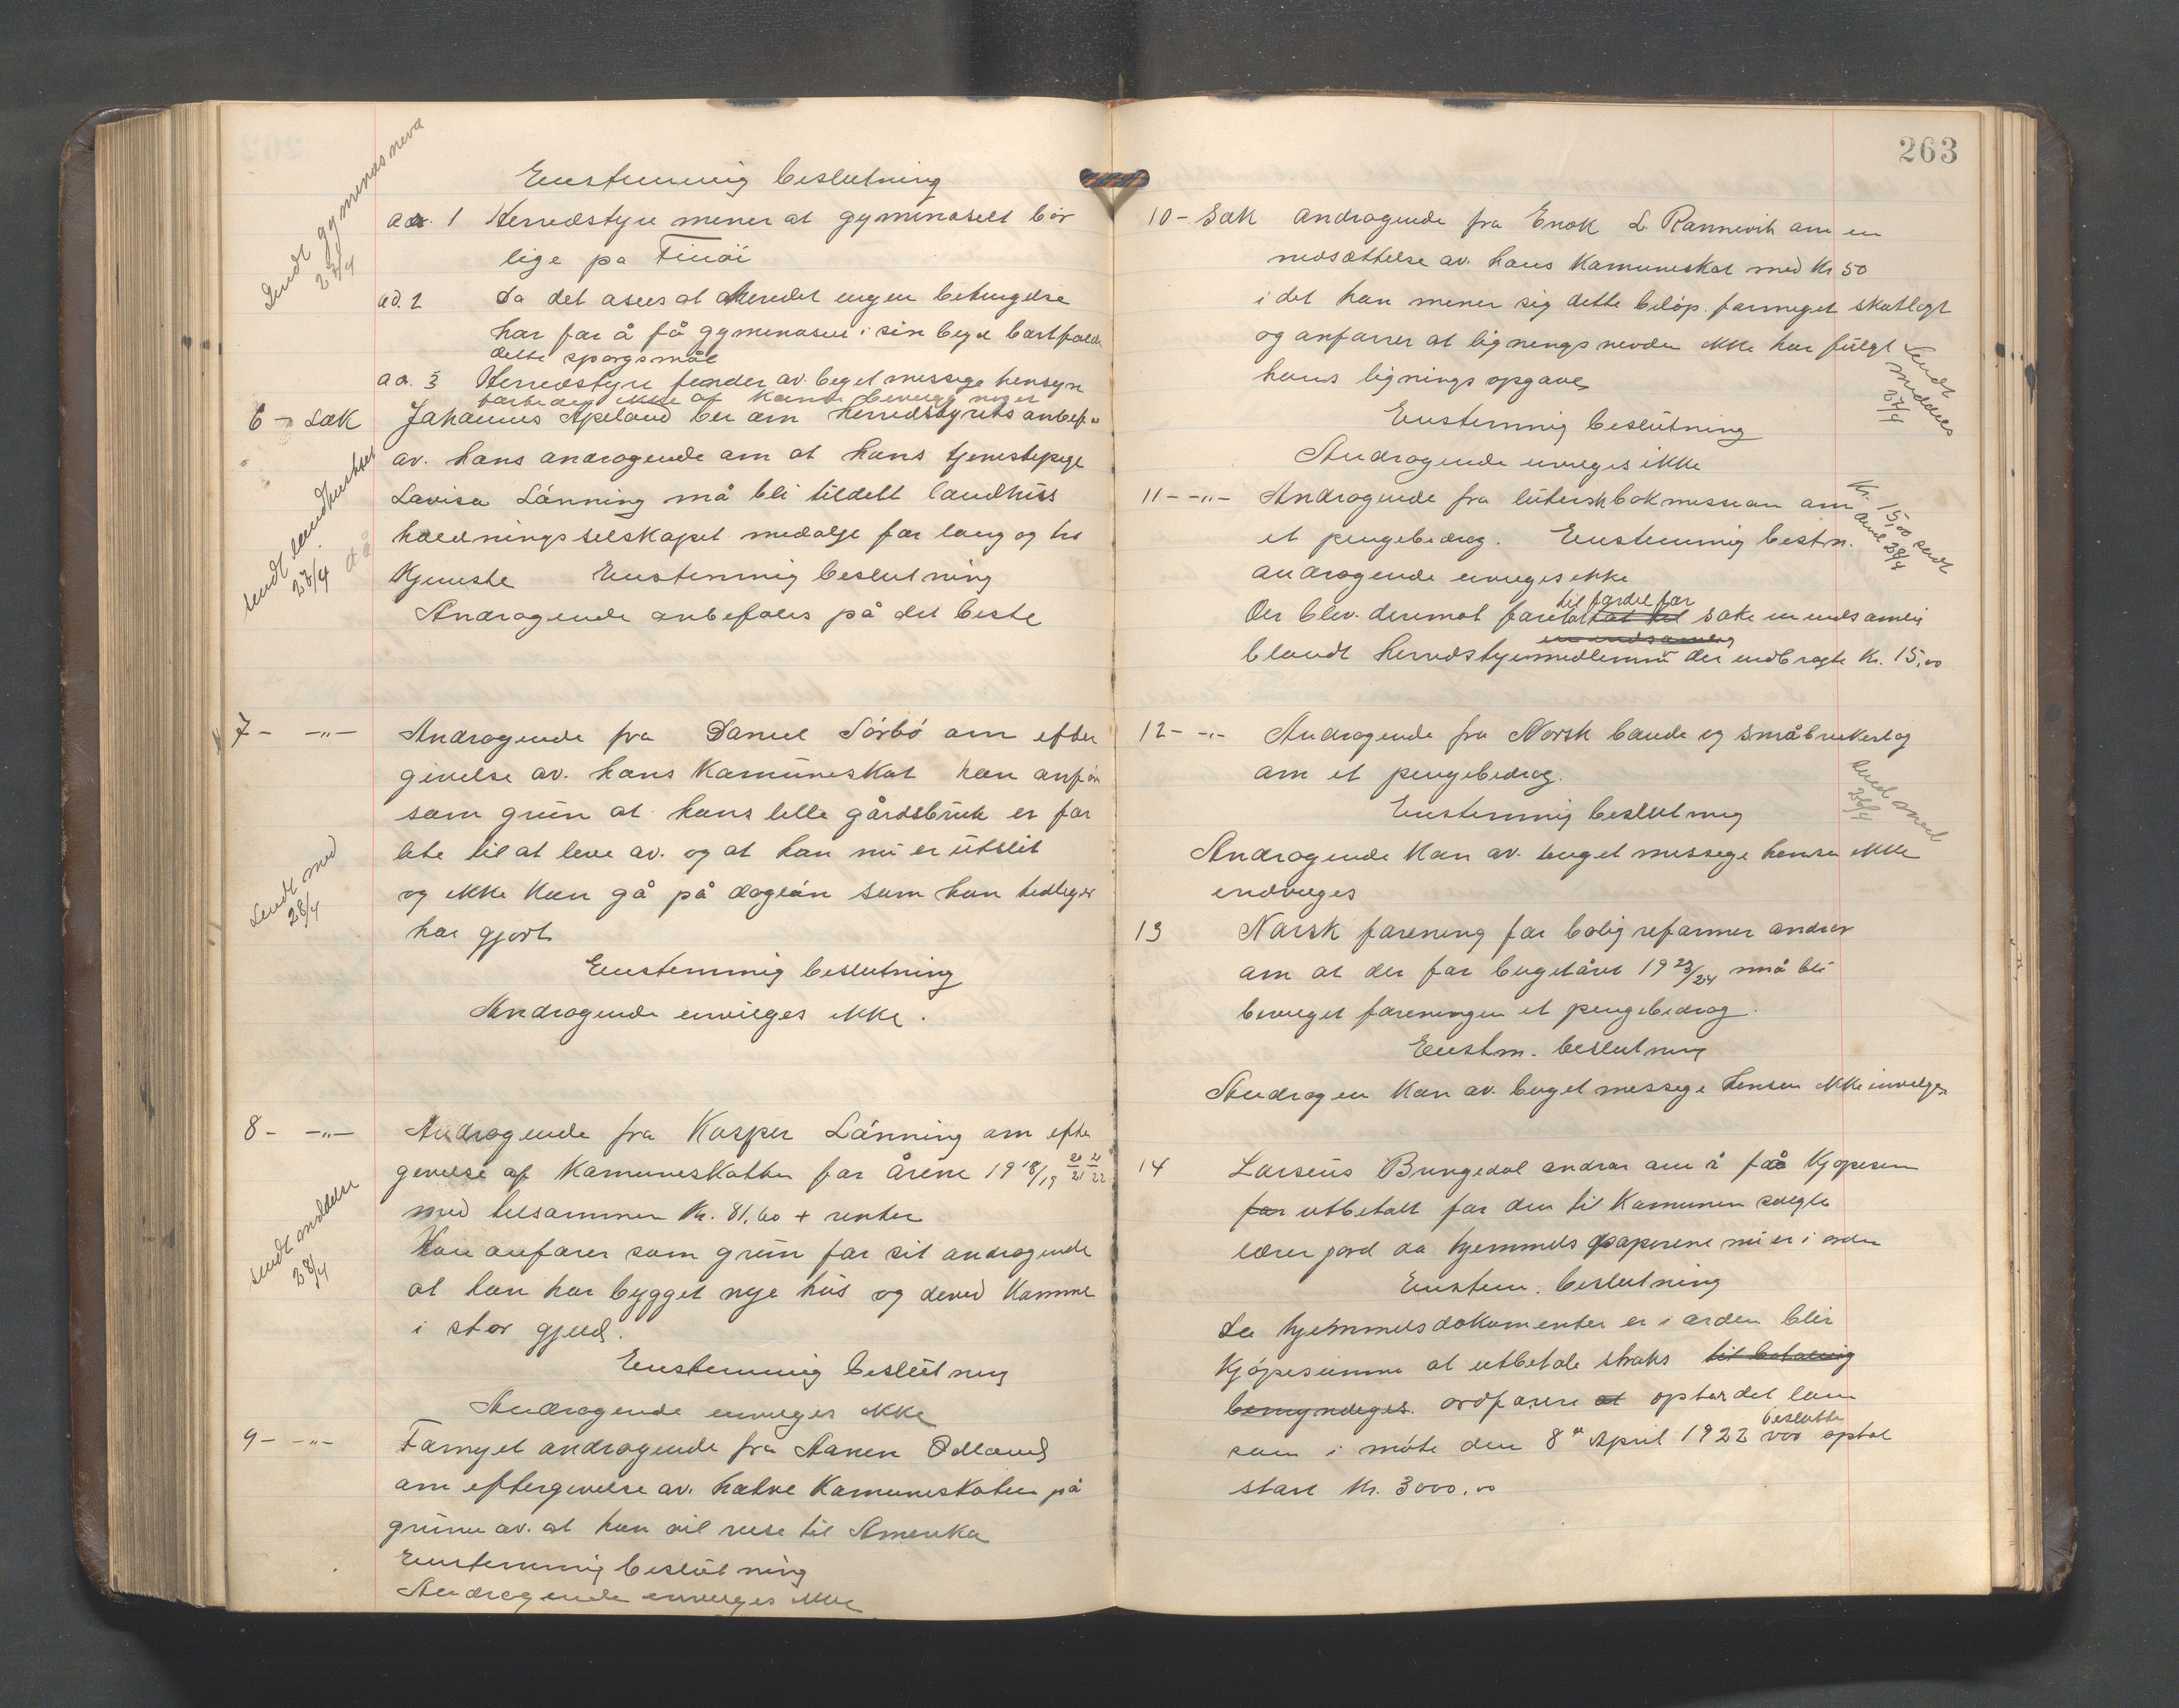 Enstemmig beslutning
ad. 1 Herredstyre mener at gymnaset bör
lige pa Finöi
ad. 2 Da det asees at Herredet ingen betingelse
har for å få gymnaset i sin bygd bortfalder
dette sporgsmål
ad. 3 Herredstyre finder av. buget messige hensyn
ikke at kunne bevilge noget
Sendt gymnasneva
27/4
6 - Sak Johannes Apeland ber om herredstyrets anbef.
av. hans andragende om at hans tjenestepige
Lovisa Lånning må bli tildelt landhus
holdningsselskapet medalje for lang og tro
tjeneste Enstemmig beslutning
Andragende anbefales på det beste
sendt landhushsel
27/4
7 - -"- Andragende fra Daniel Sörbö om efter
givelse av. hans Kamuneskat han anför
som grun at hans lille gårdsbruk er for
lite til at leve av. og at han nu er utslit
og ikke kan gå på daglön som han tidliger
har gjort
Enstemmig beslutning
Andragende envilges ikke.
Sendt med
28/4
8 - -"- Andragende fra Kasper Lånning om efter
gevelse af Kamuneskatten for årene 19 18/19 20/21 21/22
med tilsammen Kr. 81,60 + renter
Han anfører som grun for sit andragende
at han har bygget nye hus og derved kommet
i stor gjeld.
Enstemmig beslutning
Andragende envilges ikke
sendt meddelse
28/4
9 - -"- Fornyet andragende fra Aanen Ødland
om eftergivelse av. halve Kamuneskaten på
grunn av. at han vil reise til Amerika
Enstemmig beslutning
Andragende envilges ikke
263
10 - Sak andragende fra Enok L. Rannevik om en
nedsættelse av. hans Kamuneskat med Kr 50
i det han mener sig dette belöp. formeget skatlagt
og anförer at ligningsnevden ikke har fulgt
hans ligningsopgave
Enstemmig beslutning
Andragende envilges ikke
Sendt meddels
27/4
11 - -"- Andragende fra lutersk bokmission om
et pengebedrag. Enstemmig bestm.
andragende envilges ikke
til fordel for
Der blev. derimot foretat tat til sake en indsamling
en indsamling
blandt herredstyremedlemmer der indbragte Kr. 15,00
Kr. 15,00 sendt
28/4
12 - -"- Andragende fra Norsk bonde og småbrukerlag
om et pengebedrag.
Enstemmig beslutning
Andragende kan av. buget messige hensn ikke
endvilges
Send med
28/4
13 Norsk forening for boligreformer andrar
om at der for bugetåret 19 23/24 må bli
bevilget foreningen et pengebedrag.
Enstm. beslutning
Andragen kan av. buget messige hensn ikke invilges
14 Larseus Bungedal andrar om å få kjøpesum
for utbetalt for den til Kamunen solgte
lærerjord da hjemmels papirene nu er i orden
Enstem. beslutning
Da hjemmelsdokumenter er i orden blir
kjöpesumme at utbetale straks til betaling
bemyndiges. ordförer at optar det laan
som i möte den 8de April 1922 var beslutte optat
stort Kr. 3000,00